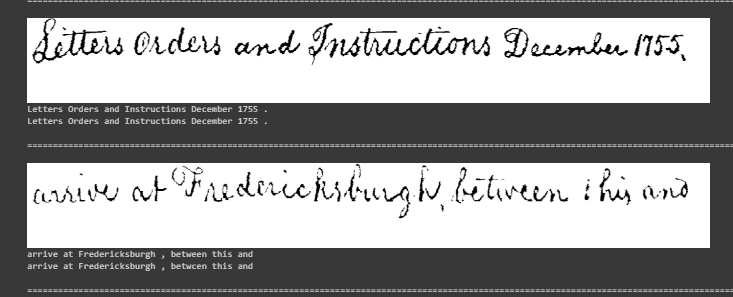 Letters Orders and Instructions December 1755.
Letters Orders and Instructions December 1755 .
Letters Orders and Instructions December 1755 .
arrive at Fredericksburgh, between this and
arrive at Fredericksburgh , between this and
arrive at Fredericksburgh , betwcen this and